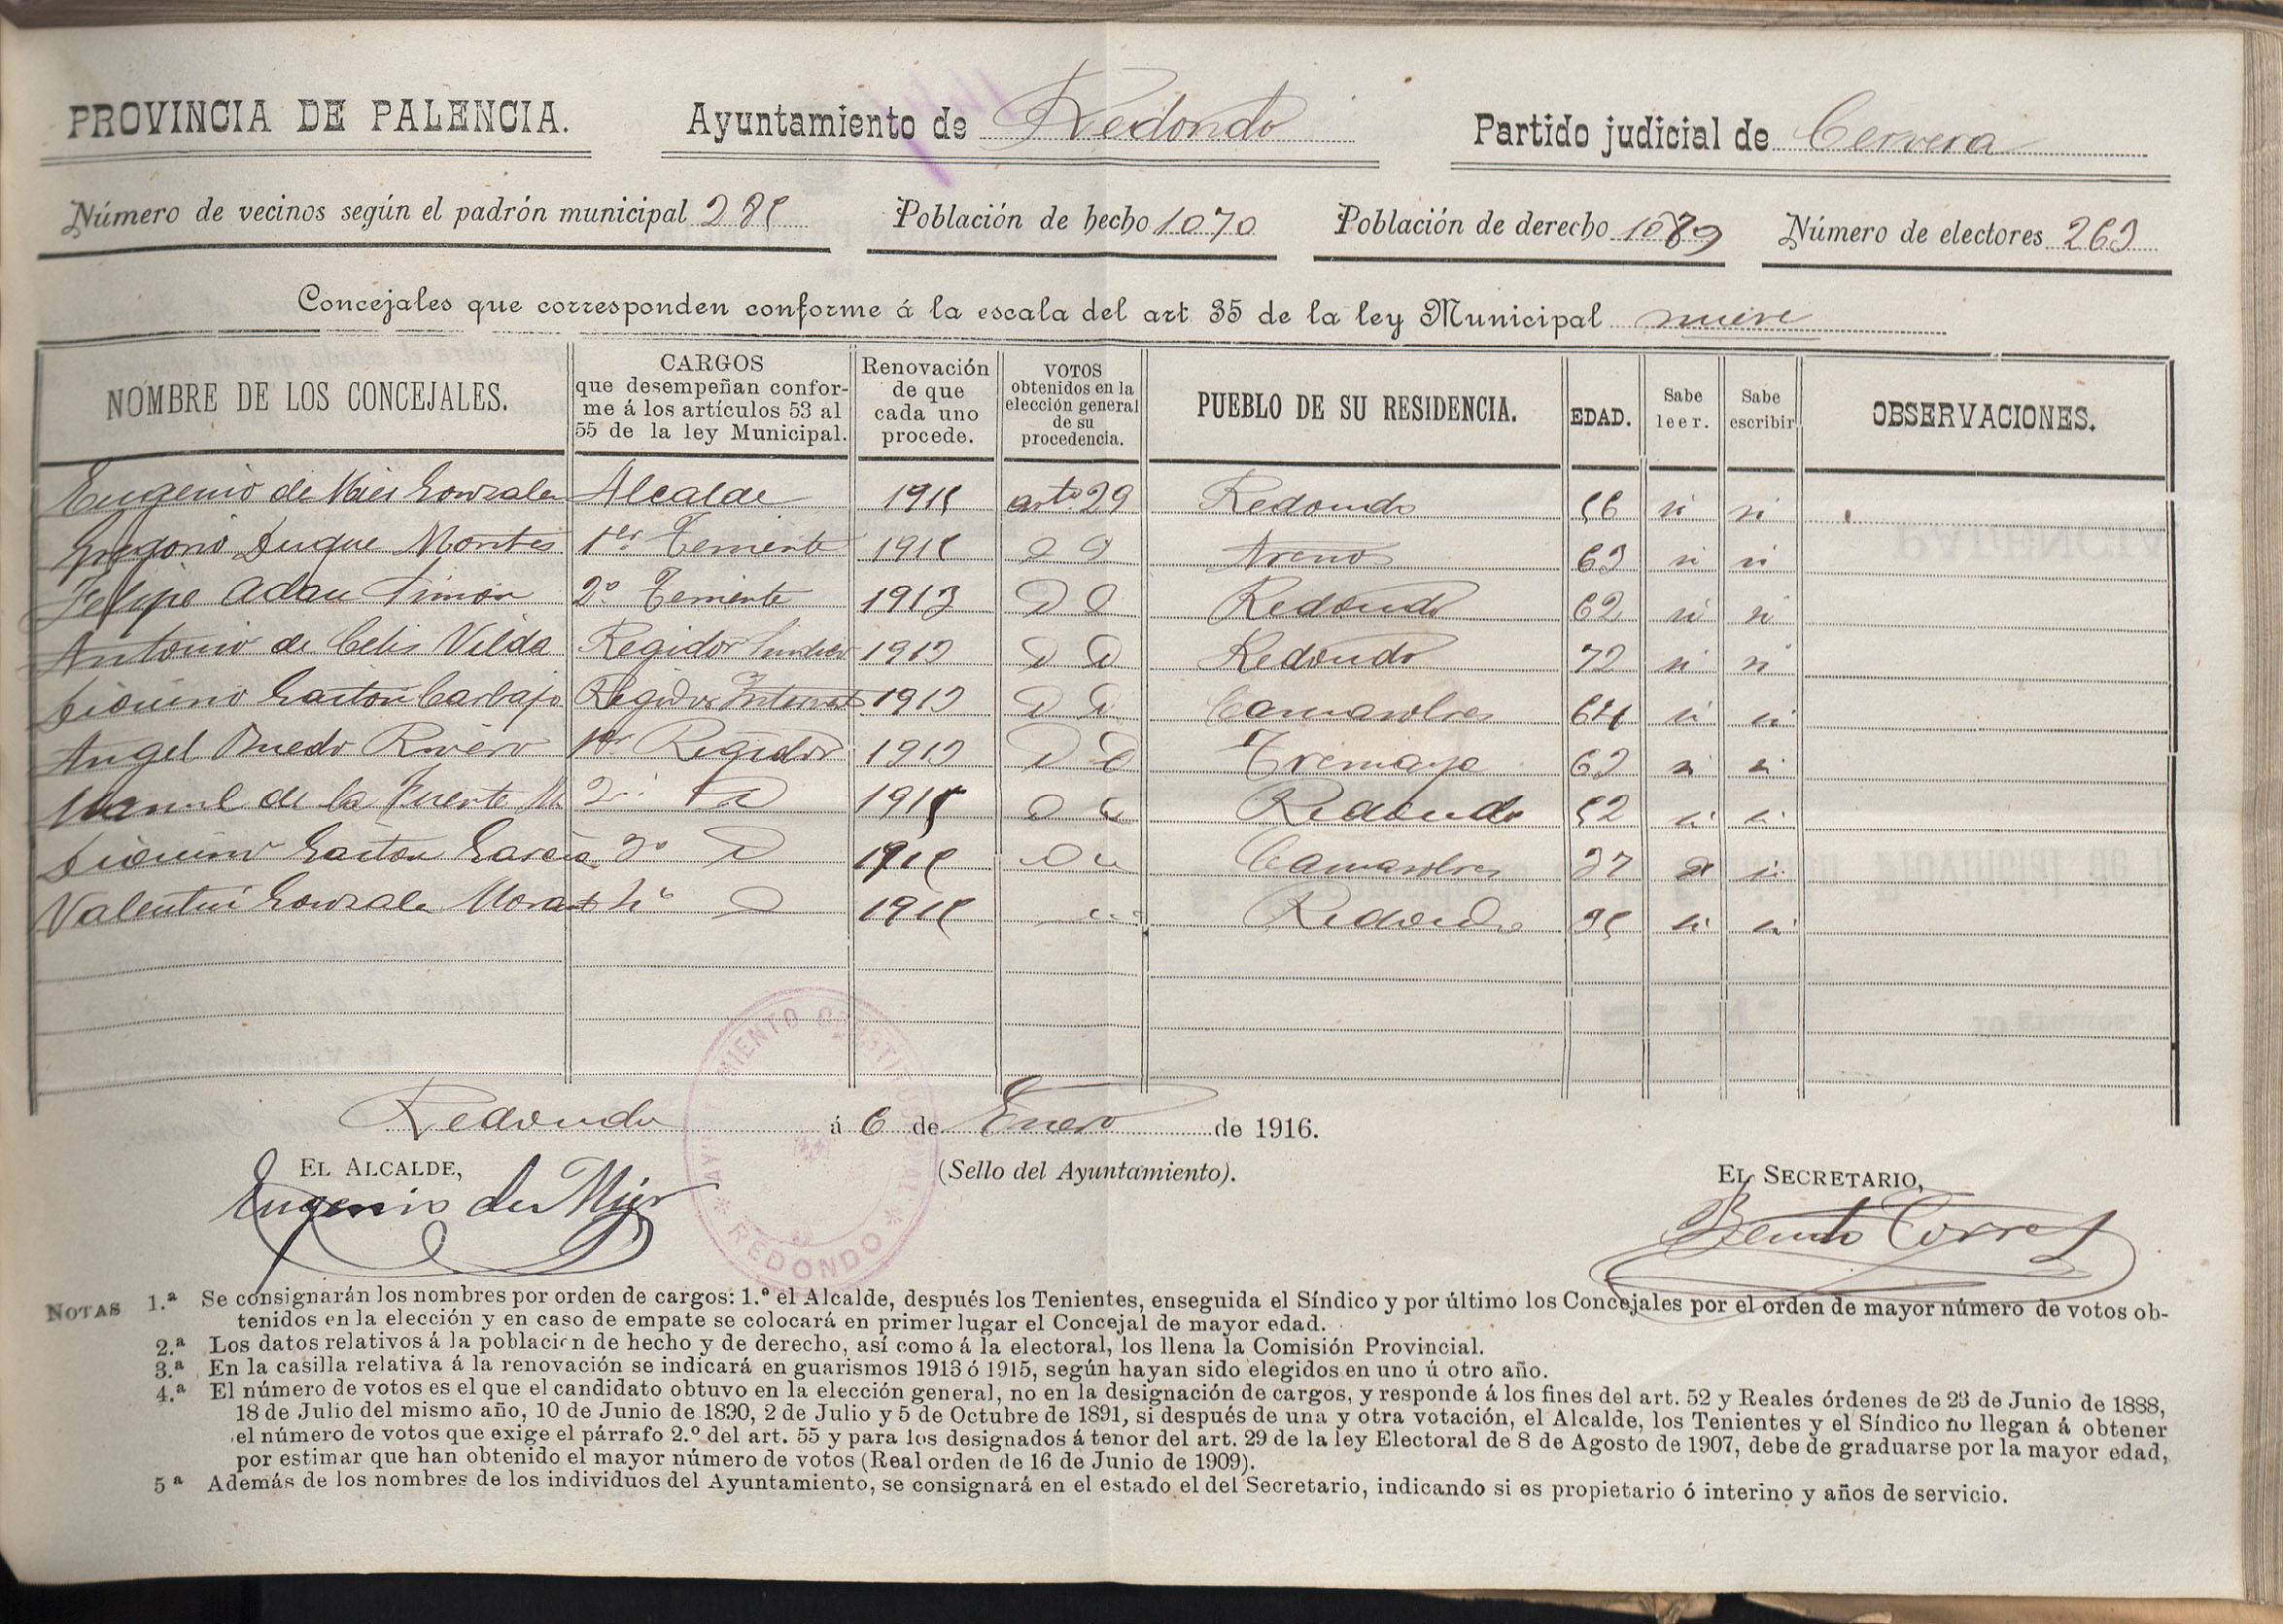 PROVINCIA DE PALENCIA. Ayuntamiento de Redondo Partido judicial de Cervera
Número de vecinos según el padrón municipal 285 Población de hecho 1070 Población de derecho 1089 Número de electores 263
Concejales que corresponden conforme á la escala del art 35 de la ley Municipal nueve
NOMBRE DE LOS CONCEJALES. CARGOS que desempeñan conforme á los artículos 53 al 55 de la ley Municipal. Renovación de que cada uno procede. VOTOS obtenidos en la elección general de su procedencia. PUEBLO DE SU RESIDENCIA. EDAD. Sabe leer. Sabe escribir OBSERVACIONES.
Eugenio de Mier Gonzalez Alcalde 1915 arto. 29 Redondo 56 si si
Gregorio Duque Montes 1er. Teniente 1915 Areños 63 si si
Felipe Adan Simon 2o Teniente 1913 Redondo 62 si si
Antonio de Celis Vilda Regidor Sindico 1913 Redondo 72 si si
Gaiton Carbajo Regidor 1913 Camasobres 64 si si
Angel Rivero 1er Regidor 1913 Tremaya 63 si si
Manuel de la Fuente M. 2o 1915 Redondo 52 si si
Gaiton Garcia 3o 1915 Camasobres 37 si si
Valentin Gonzalez Morante 4o 1915 Redondo 35 si si
Redondo á 6 de Enero de 1916.
EL ALCALDE, (Sello del Ayuntamiento). EL SECRETARIO,
Eugenio de Mier Benito Torres
AYUNTAMIENTO CONSTITUCIONAL * REDONDO *
NOTAS 1.ª Se consignarán los nombres por orden de cargos: 1.º el Alcalde, después los Tenientes, enseguida el Síndico y por último los Concejales por el orden de mayor número de votos ob-
tenidos en la elección y en caso de empate se colocará en primer lugar el Concejal de mayor edad.
2.ª Los datos relativos á la población de hecho y de derecho, así como á la electoral, los llena la Comisión Provincial.
3.ª En la casilla relativa á la renovación se indicará en guarismos 1913 ó 1915, según hayan sido elegidos en uno ú otro año.
4.ª El número de votos es el que el candidato obtuvo en la elección general, no en la designación de cargos, y responde á los fines del art. 52 y Reales órdenes de 23 de Junio de 1888,
18 de Julio del mismo año, 10 de Junio de 1890, 2 de Julio y 5 de Octubre de 1891, si después de una y otra votación, el Alcalde, los Tenientes y el Síndico no llegan á obtener
el número de votos que exige el párrafo 2.º del art. 55 y para los designados á tenor del art. 29 de la ley Electoral de 8 de Agosto de 1907, debe de graduarse por la mayor edad,
por estimar que han obtenido el mayor número de votos (Real orden de 16 de Junio de 1909).
5ª Además de los nombres de los individuos del Ayuntamiento, se consignará en el estado el del Secretario, indicando si es propietario ó interino y años de servicio.